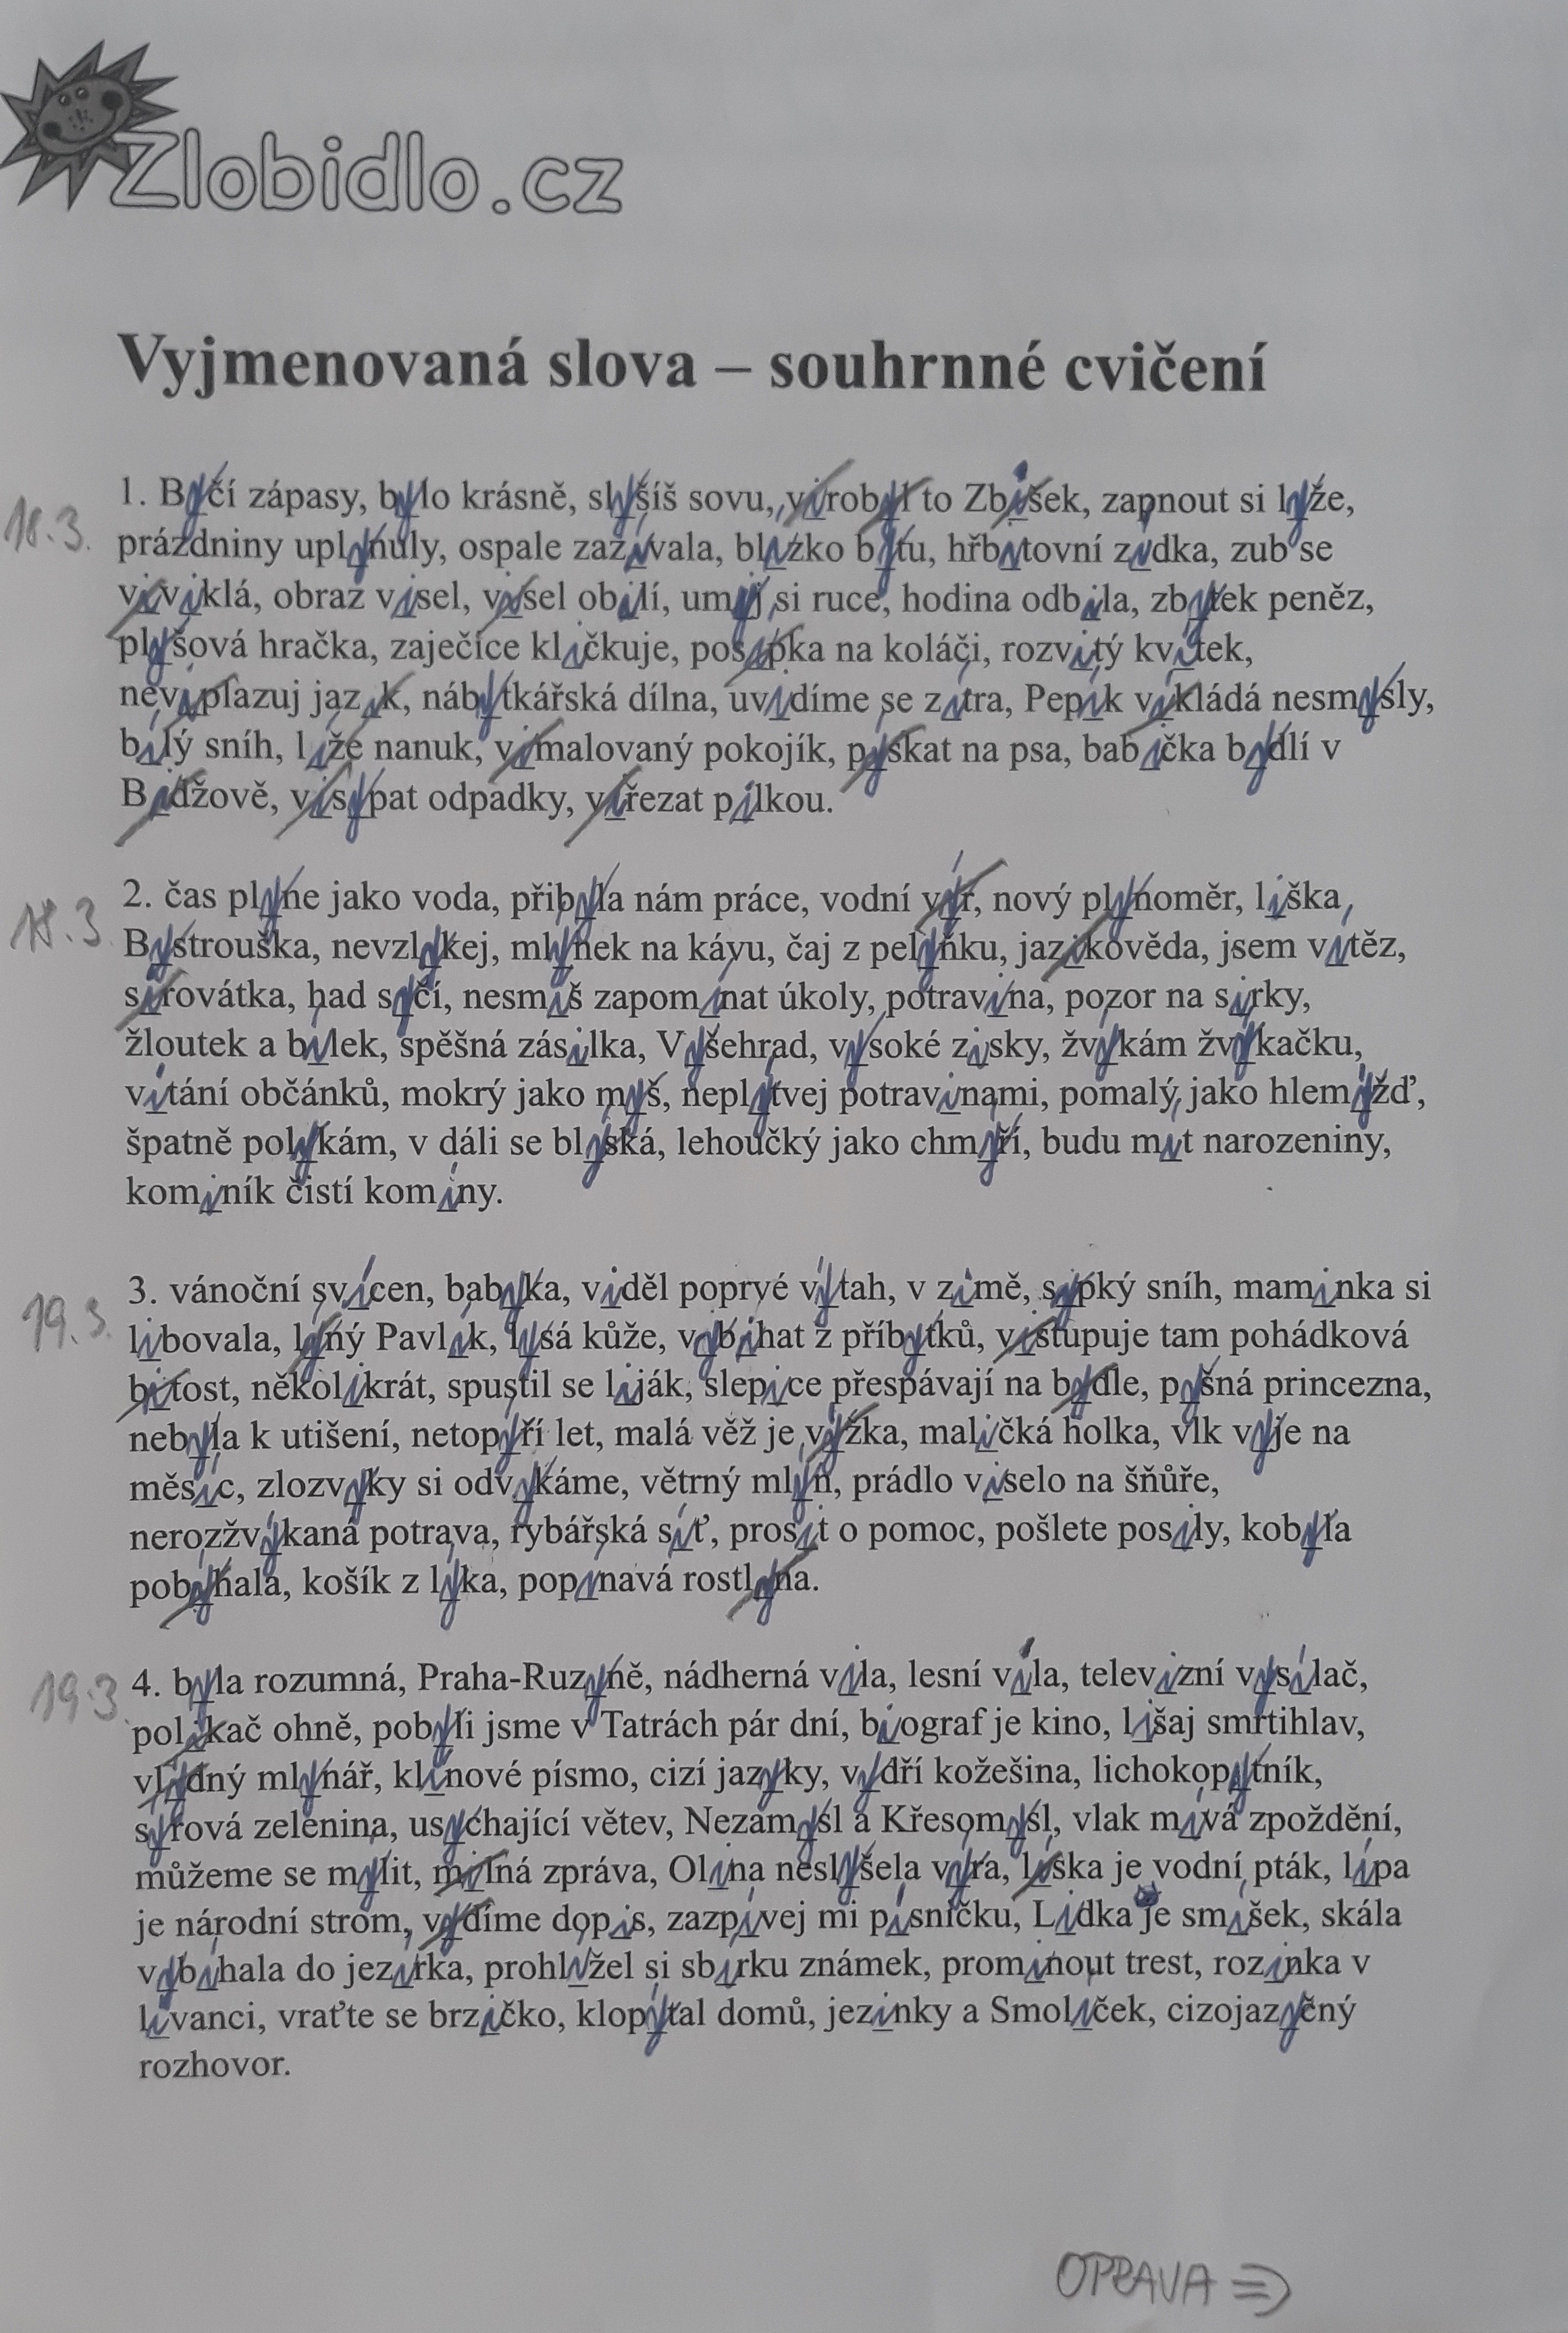 Zlobidlo.cz
Vyjmenovaná slova – souhrnné cvičení
18.3.
1. Býčí zápasy, bylo krásně, slyšíš sovu, virobyl to Zbišek, zapnout si lyže,
prázdniny uplynuly, ospale zazívala, blízko bytu, hřbitovní zídka, zub se
viviklá, obraz visel, visel obilí, umyj si ruce, hodina odbila, zbytek peněz,
plyšová hračka, zaječice kličkuje, posipka na koláči, rozvitý kvítek,
neviplazuj jazik, nábytkářská dílna, uvidíme se zítra, Pepík vikládá nesmysly,
bílý sníh, líže nanuk, vimalovaný pokojík, pýskat na psa, babička bydlí v
Bidžově, visypat odpadky, viřezat pilkou.
18.3
2. čas plyne jako voda, přibyla nám práce, vodní výr, nový plynoměr, liška
Bystrouška, nevzlykej, mlýnek na kávu, čaj z pelyňku, jazikověda, jsem vítěz,
sirovátka, had syčí, nesmíš zapomínat úkoly, potravina, pozor na sirky,
žloutek a bílek, spěšná zásilka, Vyšehrad, vysoké zisky, žvýkám žvýkačku,
vítání občánků, mokrý jako myš, neplýtvej potravinami, pomalý jako hlemýžď,
špatně polykám, v dáli se blýská, lehoučký jako chmýří, budu mít narozeniny,
kominík čistí komíny.
19.3.
3. vánoční svícen, babyka, viděl poprvé výtah, v zimě, sypký sníh, maminka si
libovala, lýný Pavlík, lysá kůže, vybíhat z příbytků, vistupuje tam pohádková
bitost, několikrát, spustil se liják, slepice přespávají na bydle, pyšná princezna,
nebyla k utišení, netopýří let, malá věž je výžka, maličká holka, vlk vyje na
měsíc, zlozvyky si odvykáme, větrný mlýn, prádlo viselo na šňůře,
nerozžvýkaná potrava, rybářská síť, prosit o pomoc, pošlete posily, kobyla
pobýhala, košík z lýka, popínavá rostlyna.
19.3.
4. byla rozumná, Praha-Ruzyně, nádherná vila, lesní víla, televizní vysílač,
polikač ohně, pobyli jsme v Tatrách pár dní, biograf je kino, lišaj smrtihlav,
vlýdný mlynář, klínové písmo, cizí jazyky, vydří kožešina, lichokopytník,
syrová zelenina, usychající větev, Nezamysl a Křesomysl, vlak mívá zpoždění,
můžeme se mýlit, milná zpráva, Olina neslyšela výra, liska je vodní pták, lípa
je národní strom, vydíme dopis, zazpívej mi písničku, Lidka je smíšek, skála
vybíhala do jezírka, prohlížel si sbírku známek, prominout trest, rozinka v
lívanci, vraťte se brzičko, klopýtal domů, jezinky a Smolíček, cizojazyčný
rozhovor.
OPRAVA ⇒